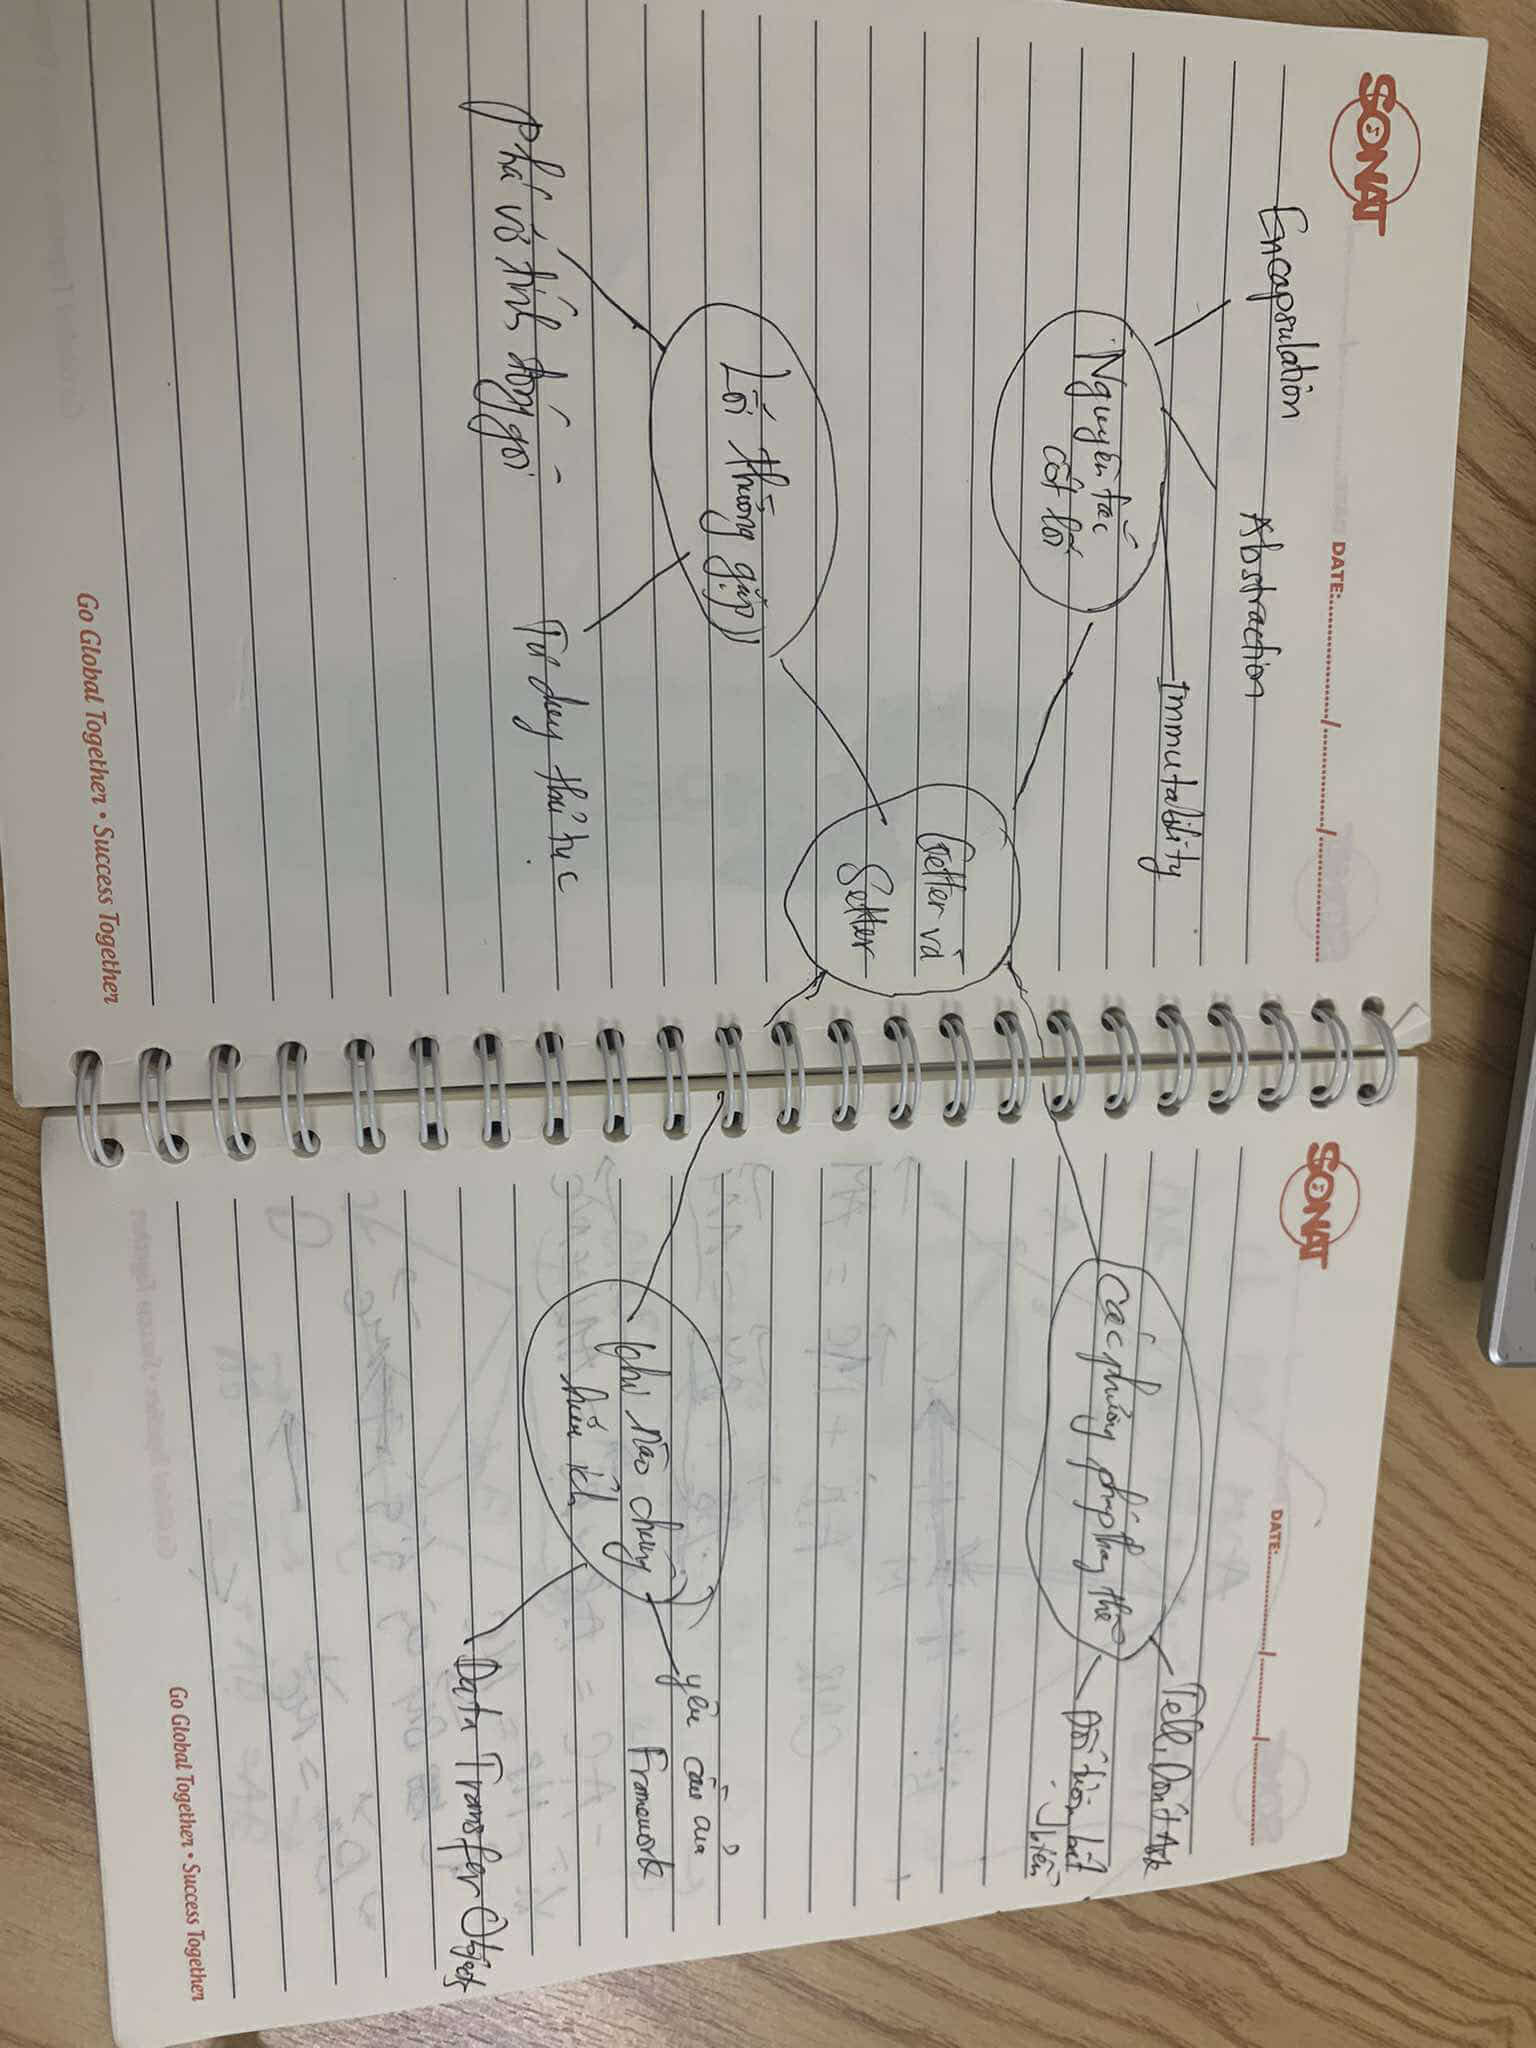 SONAT
DATE:............/............/............
Encapsulation
Abstraction
Immutability
Nguyên tắc
cốt lõi
Getter và
Setter
Lỗi thường gặp
Phá vỡ tính đóng gói
Tư duy thủ tục
Go Global Together • Success Together
SONAT
DATE:............/............/............
Các phương pháp thay thế
Tell, Don't Ask
Đối tượng bất
biến
Khi nào chúng
hữu ích
yêu cầu của
Framework
Data Transfer Objects
Go Global Together • Success Together